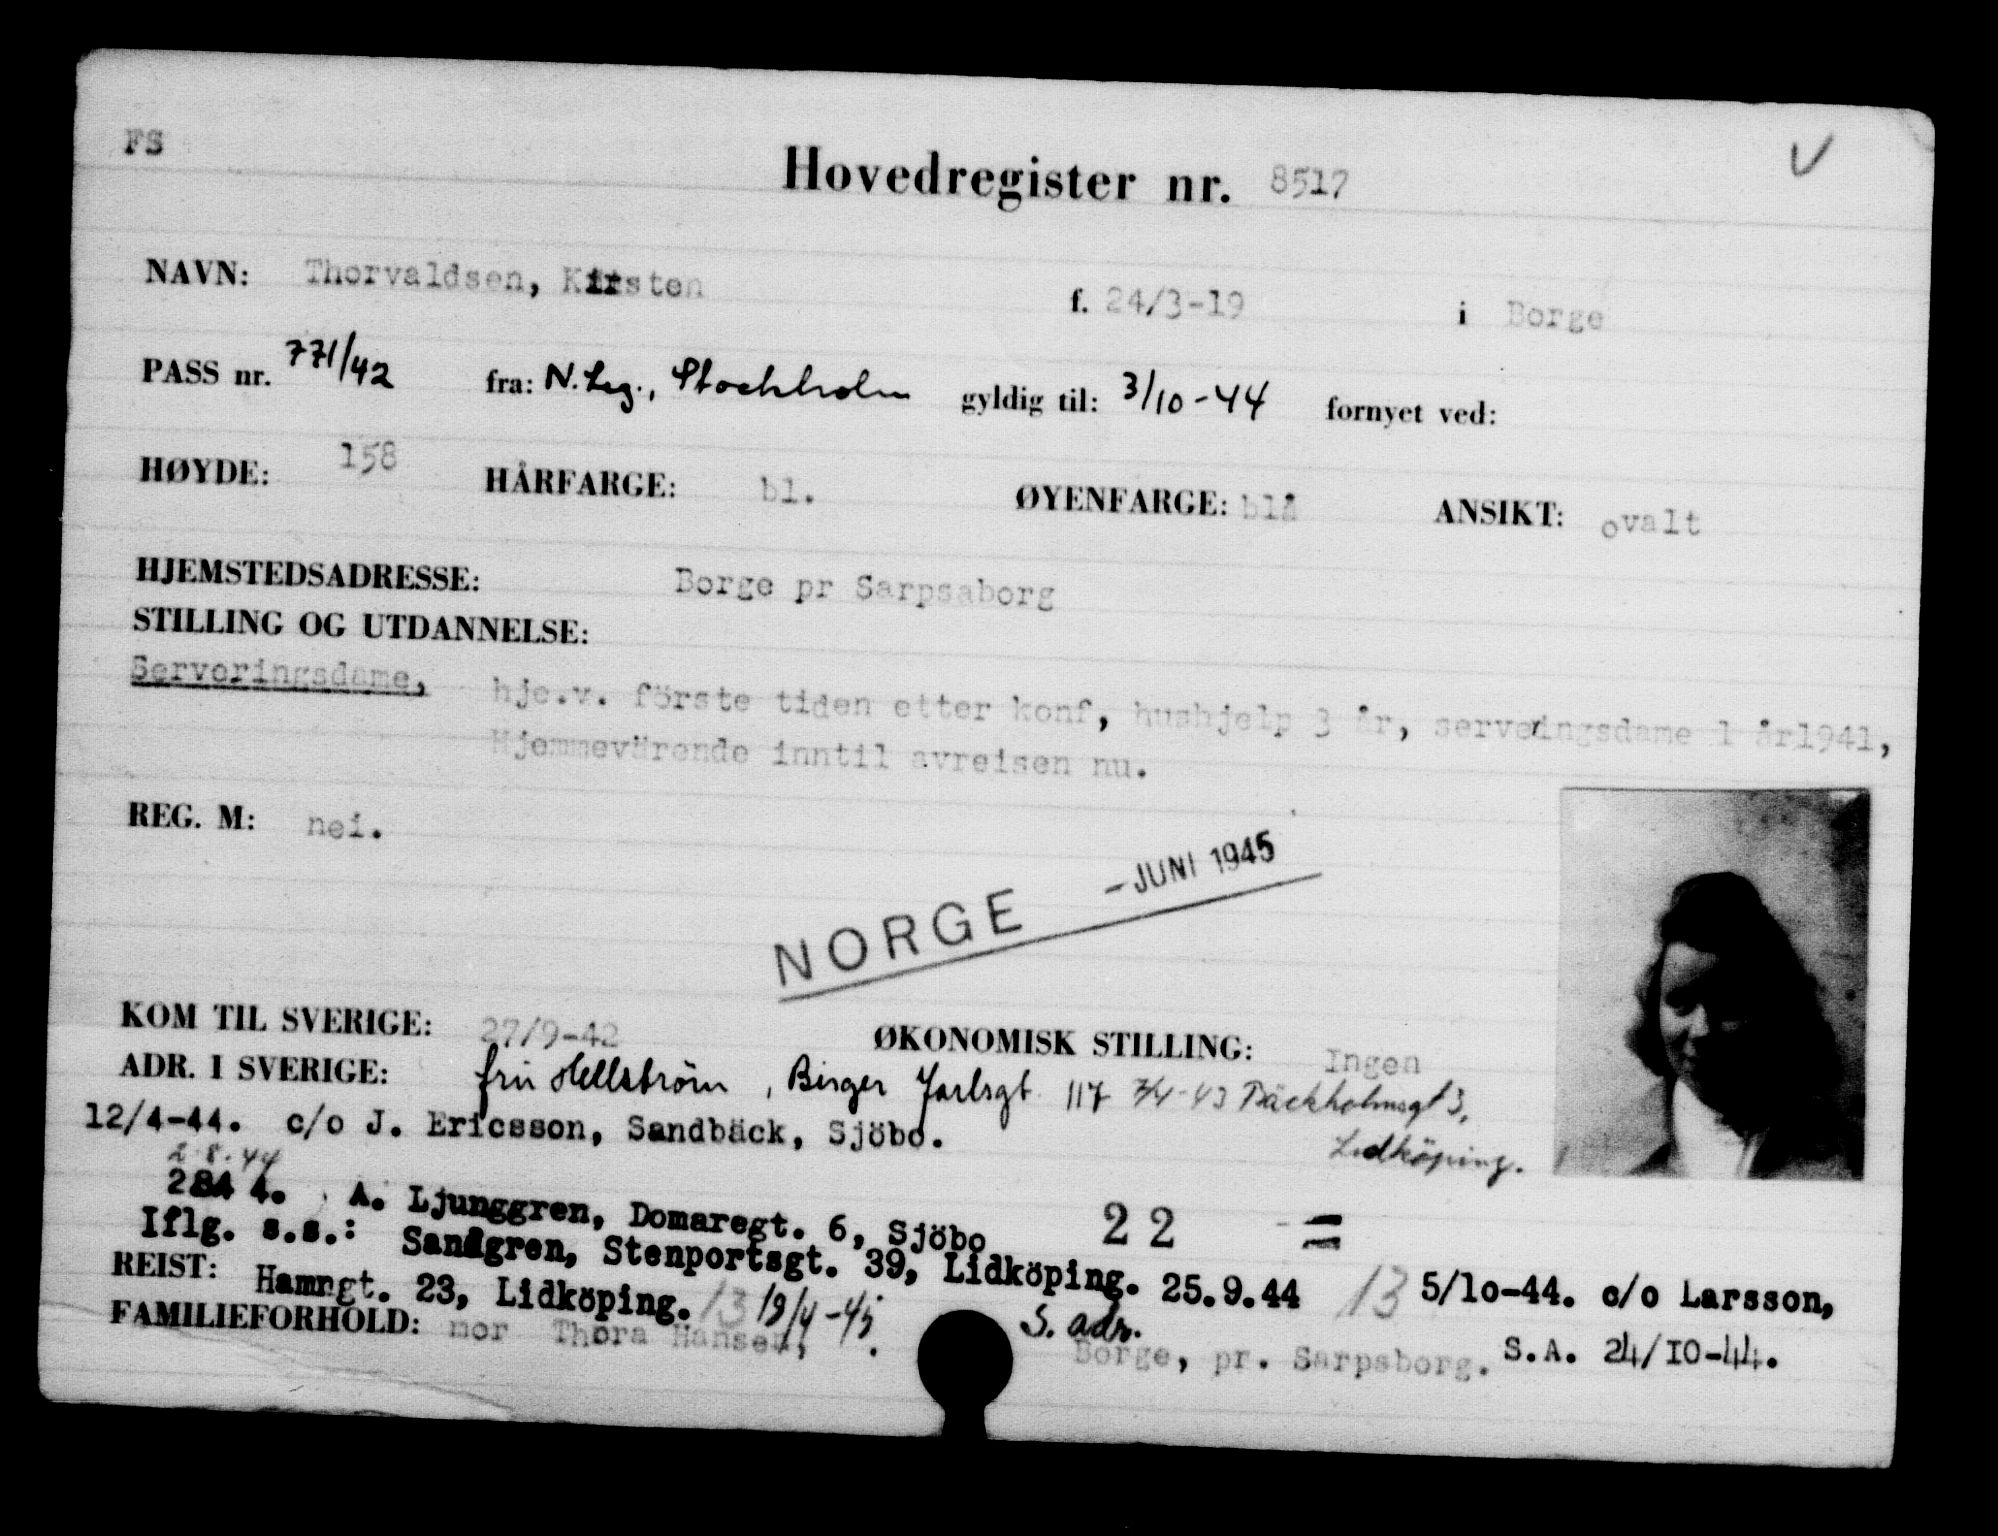 FS
Hovedregister nr. 8517
NAVN: Thorvaldsen, Kirsten f. 24/3-19 i Borge
PASS nr. 771/42 fra: N. Leg., Stockholm gyldig til: 3/10-44 fornyet ved:
HØYDE: 158 HÅRFARGE: bl. ØYENFARGE: blå ANSIKT: ovalt
HJEMSTEDSADRESSE: Borge pr Sarpsaborg
STILLING OG UTDANNELSE:
Serveringsdame, hje.v. förste tiden etter konf, hushjelp 3 år, serveringsdame 1 år1941,
Hjemmevärende inntil avreisen nu.
REG. M: nei.
NORGE - JUNI 1945
KOM TIL SVERIGE: 27/9-42 ØKONOMISK STILLING: Ingen
ADR. I SVERIGE: fru Hellström, Birger Jarlsgt. 117 7/4-43 Bäckholmsgt 3,
Lidköping.
12/4-44. c/o J. Ericsson, Sandbäck, Sjöbo.
2.8.44
284 4. A. Ljunggren, Domaregt. 6, Sjöbo 22 - =
Iflg. s.s.: Sandgren, Stenportsgt. 39, Lidköping. 25.9.44 13 5/10-44. c/o Larsson,
REIST: Hamngt. 23, Lidköping. 13 19/4-45 S. adr. S.A. 24/10-44.
FAMILIEFORHOLD: mor Thora Hansen, . Borge, pr. Sarpsborg.